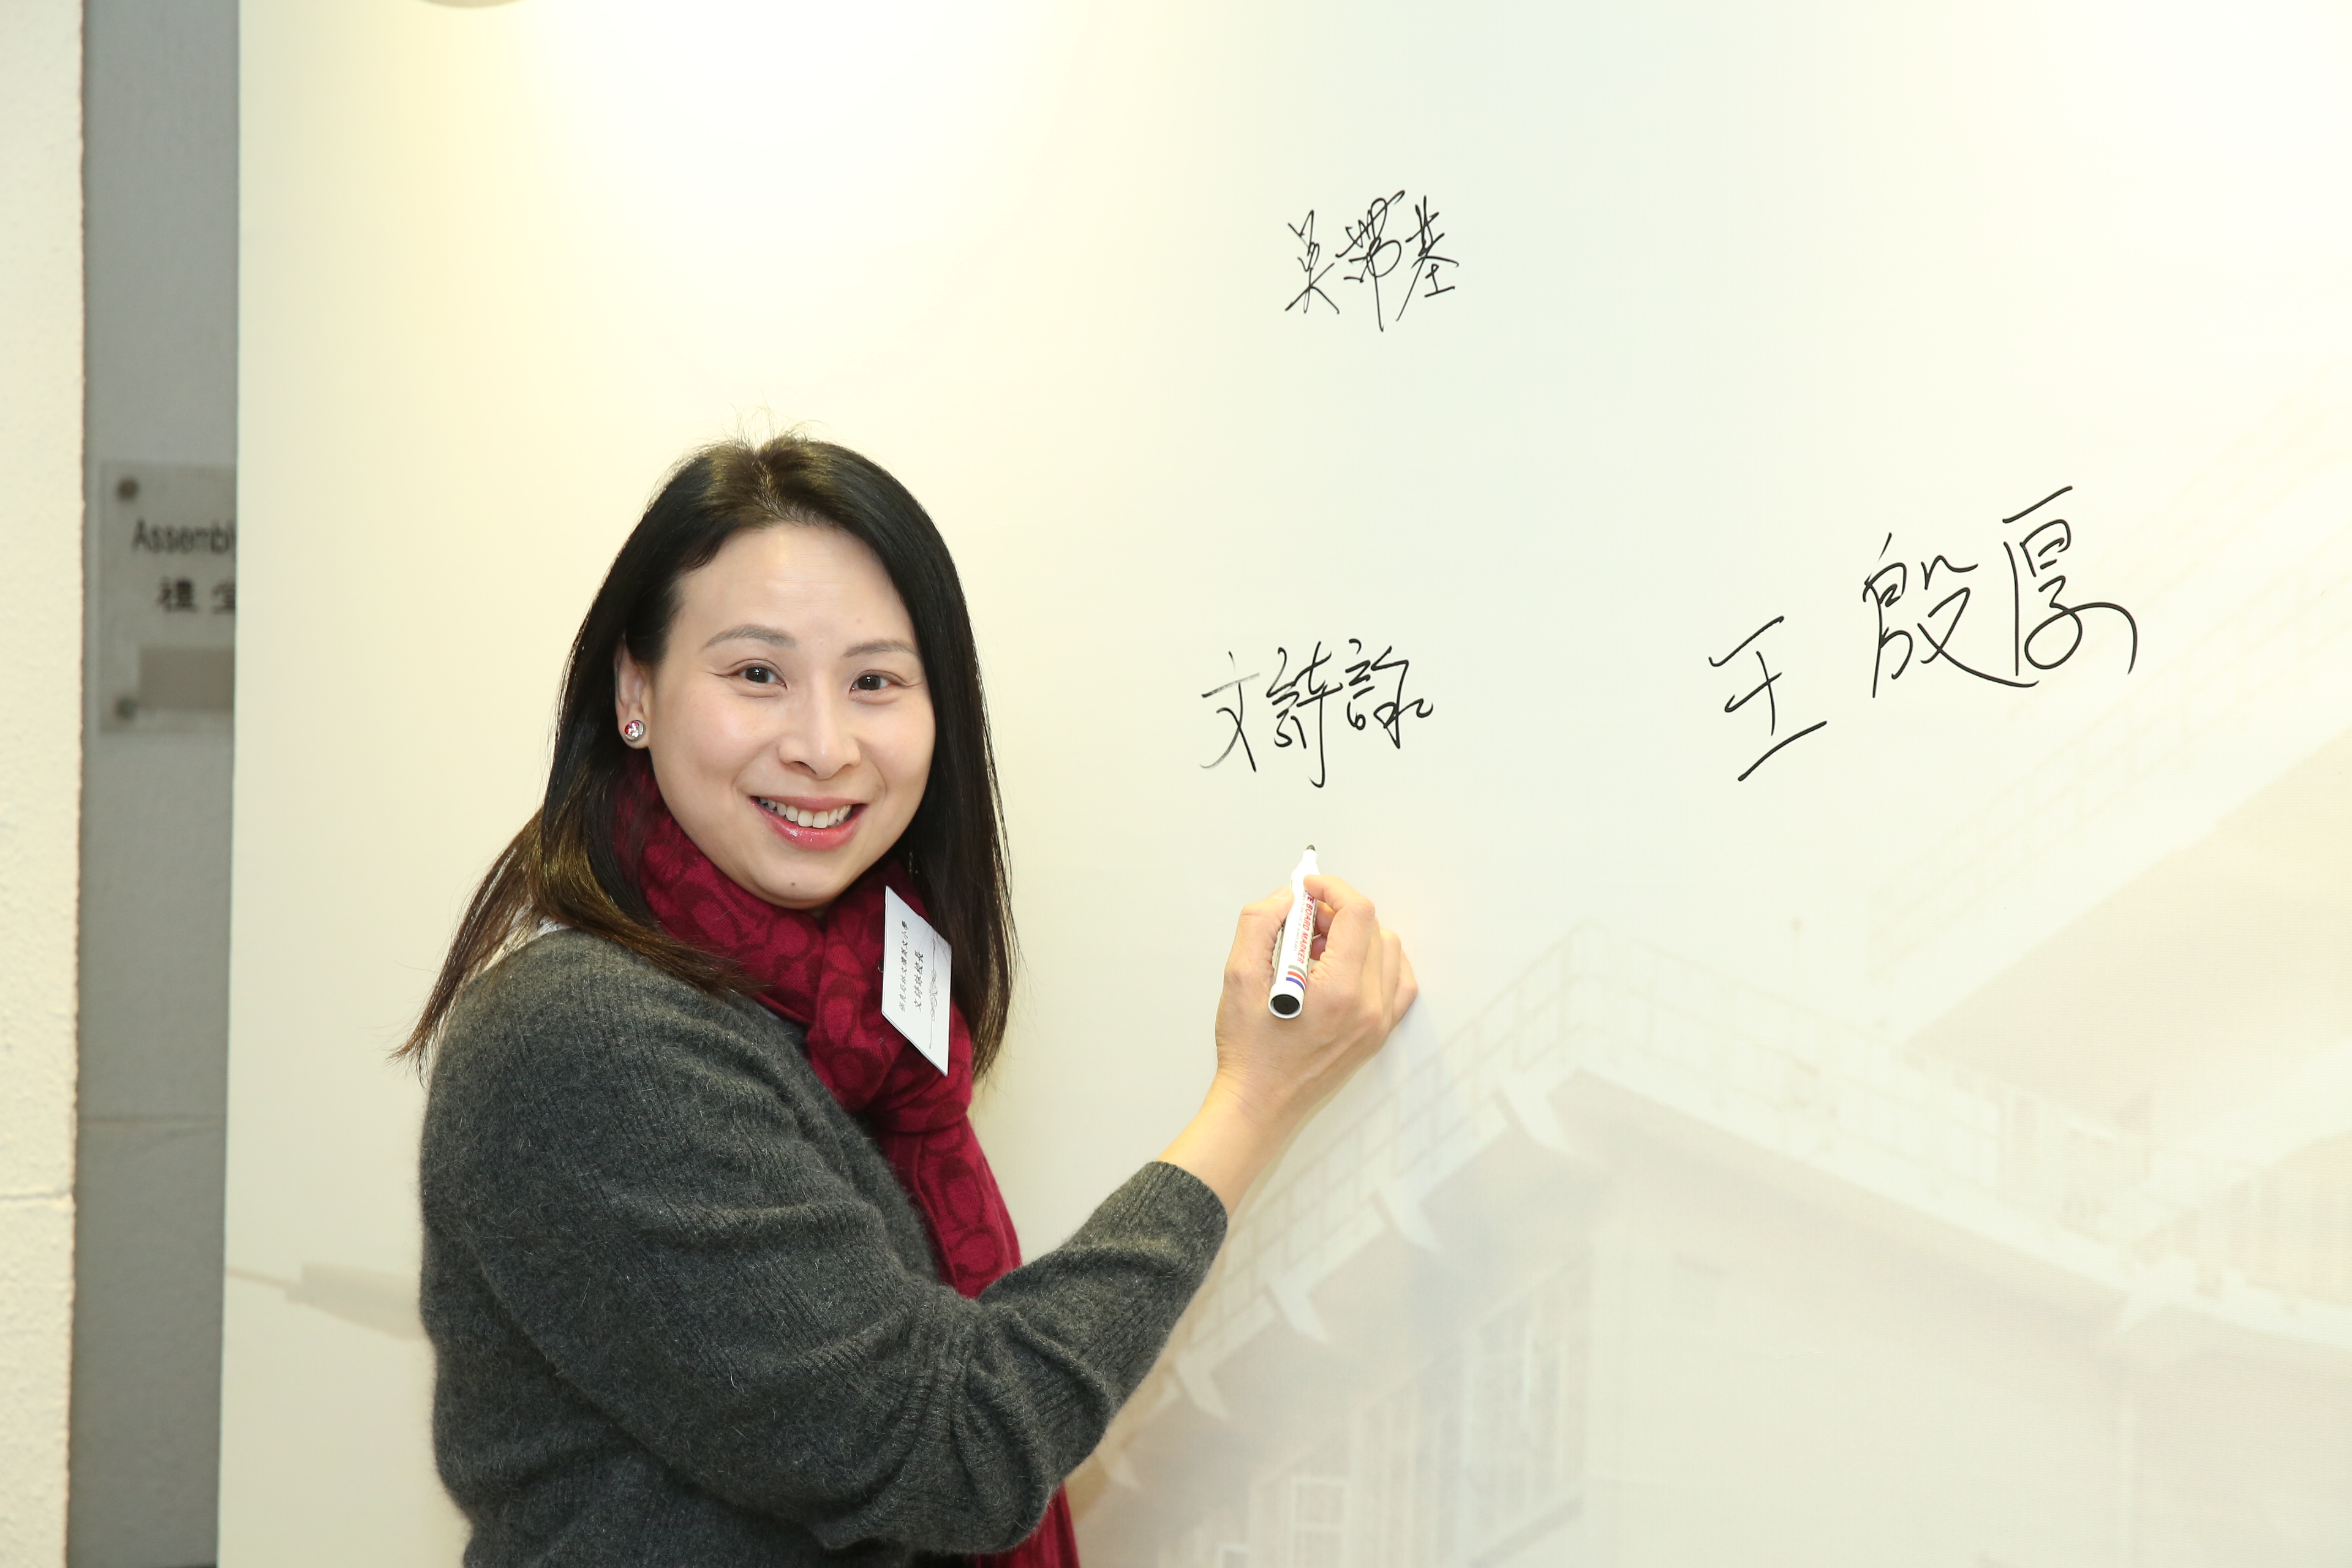 Assembly
禮堂
吳帶基
文詩詠
王殷厚
文詩詠校長
BOARD MARKER